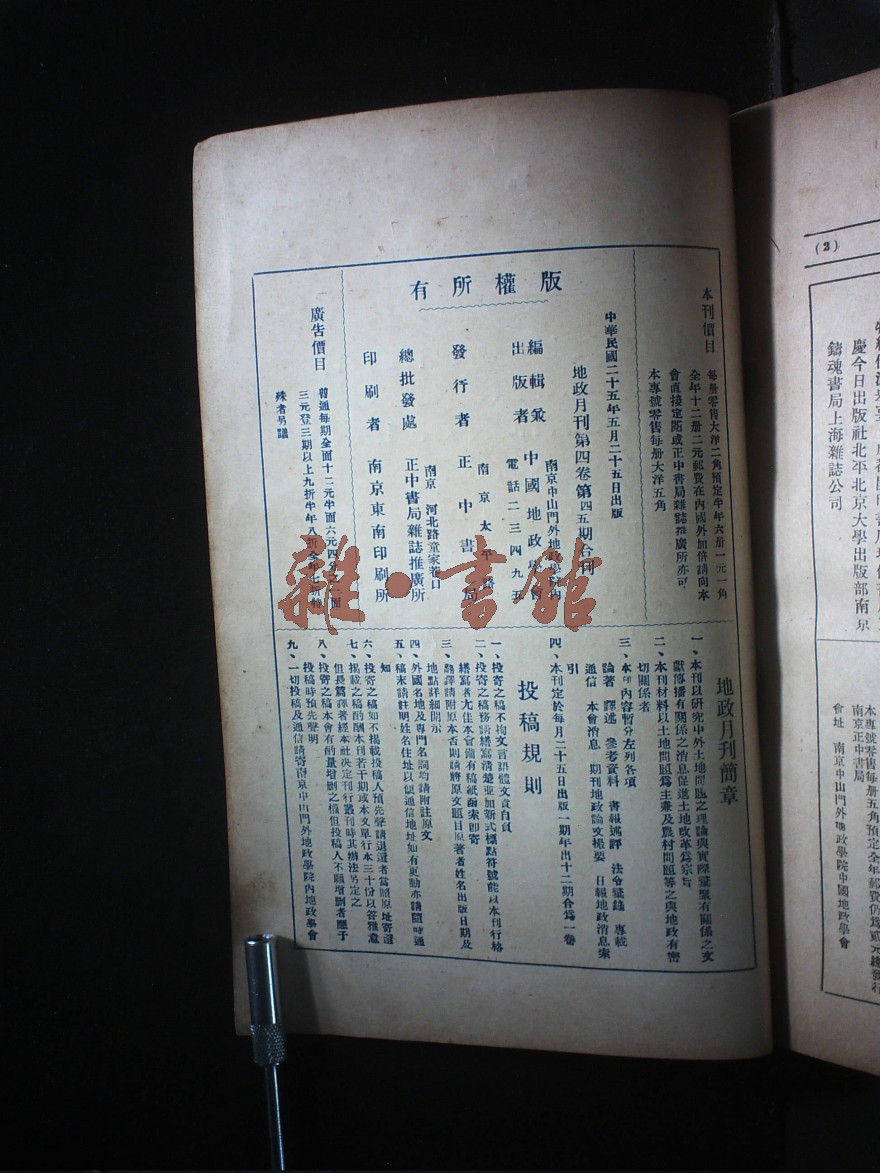 本刊價目
每册零售大洋二角預定半年六册一元一角
全年十二册二元郵費在內國外加倍請向本
會直接定閱或正中書局雜誌推廣所亦可
本專號零售每册大洋五角
版權所有
中華民國二十五年五月二十五日出版
地政月刊第四卷第四五期合刊
編輯兼
出版者
南京中山門外地政學院內
中國地政學會
電話二三四九五
發行者
南京太平路
正中書局
總批發處
南京 河北路童家巷口
正中書局雜誌推廣所
印刷者 南京東南印刷所
廣告價目
普通每期全面十二元半面六元四分之一面
三元登三期以上九折半年八折全年七折特
殊者另議
地政月刊簡章
一、本刊以研究中外土地問題之理論與實際彙聚有關係之文
獻傳播有關係之消息促進土地改革爲宗旨
二、本刊材料以土地問題爲主兼及農村問題等之與地政有密
切關係者
三、本刊內容暫分左列各項
論著 譯述 參考資料 書報述評 法令彙錄 專載
通信 本會消息 期刊地政論文撮要 日報地政消息索
引
四、本刊定於每月二十五日出版一期年出十二期合爲一卷
投稿規則
一、投寄之稿不拘文言語體文責自負
二、投寄之稿務請繕寫清楚並加新式標點符號能以本刊行格
繕寫者尤佳本會備有稿紙函索卽寄
三、翻譯請附原本否則請將原文題目原著者姓名出版日期及
地點詳細開示
四、外國名地及專門名詞均請附註原文
五、稿末請註明姓名住址以便通信地址如有更動亦請隨時通
知
六、投寄之稿如不揭載投稿人預先聲請退還者當照原址寄還
七、揭載之稿酌酬本刊若干期或本文單行本三十份以答雅意
但長篇譯著經本社決定刊行叢刊時其辦法另定之
八、投寄之稿本會有酌量增删之權但投稿人不願增删者應于
投稿時預先聲明
九、一切投稿及通信請寄南京中山門外地政學院內地政學會
雜·書館
(2)
慶今日出版社北平北京大學出版部南京
鑄魂書局上海雜誌公司
本專號零售每册五角預定全年郵費仍爲貳元總發行
南京正中書局
會址 南京中山門外地政學院中國地政學會